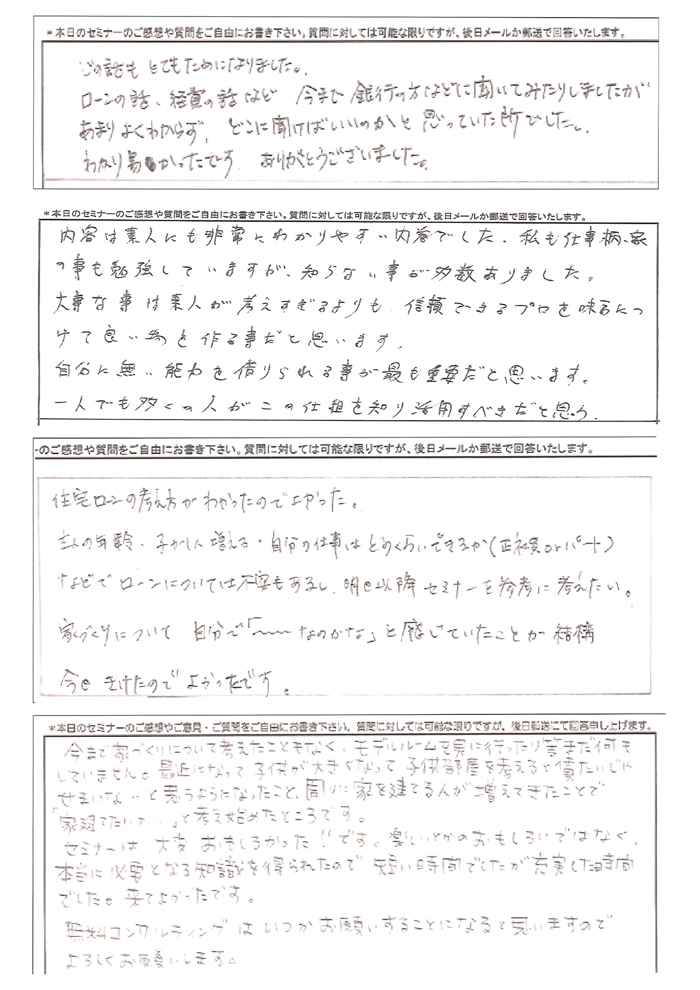 *本日のセミナーのご感想や質問をご自由にお書き下さい。質問に対しては可能な限りですが、後日メールか郵送で回答いたします。
どの話も とてもためになりました。
ローンの話、経費の話など 今まで 銀行の方などに聞いてみたりしましたが
あまりよくわからず、どこに聞けばいいのかと思っていた所でした。
わかり易かったです。ありがとうございました。
*本日のセミナーのご感想や質問をご自由にお書き下さい。質問に対しては可能な限りですが、後日メールか郵送で回答いたします。
内容は素人にも非常にわかりやすい内容でした。私も仕事柄、家
の事も勉強していますが、知らない事が多数ありました。
大事な事は素人が考えすぎるよりも、信頼できるプロを味方につ
けて良い物を作る事だと思います。
自分に無い能力を借りられる事が最も重要だと思います。
一人でも多くの人がこの仕組を知り活用すべきだと思う。
-のご感想や質問をご自由にお書き下さい。質問に対しては可能な限りですが、後日メールか郵送で回答いたします。
住宅ローンの考え方がわかったのでよかった。
主人の年齢・子がもし増える・自分の仕事はどのくらいできるか(正社員orパート)
などで ローンについては不安もあるし、明日以降 セミナーを参考に考えたい。
家づくりについて 自分で「〜〜なのかな」と感じていたことが 結構
今日 きけたので よかったです。
*本日のセミナーのご感想やご意見・ご質問をご自由にお書き下さい。質問に対しては可能な限りですが、後日郵送にて回答申し上げます。
今まで家づくりについて考えたこともなく、モデルルームを見に行ったり等まだ何も
していません。最近になって子供が大きくなって子供部屋を考えると
せまいな…と思うようになったこと、周りに家を建てる人が増えてきたことで
「家建てたいな…」と考え始めたところです。
セミナーは 大変 おもしろかった!!です。楽しいとかのおもしろいではなく、
本当に必要となる知識を得られたので 短い時間でしたが充実した時間
でした。来てよかったです。
無料コンサルティングはいつかお願いすることになると思いますので
よろしくお願いします。